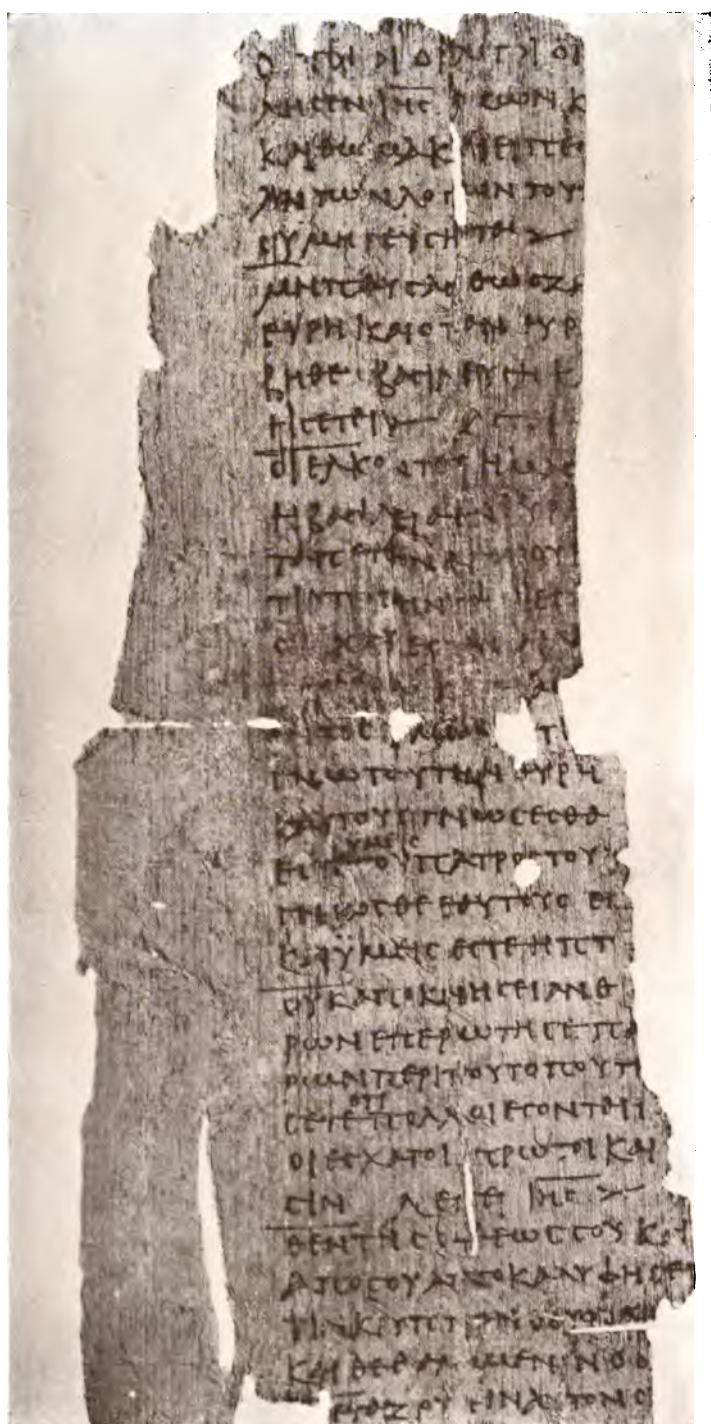 ΟΙ ΤΟΙΟΙ ΟΙ ΛΟΓΟΙ ΟΙ
ΛΗϹΕΝ ΙΗϹ Ο ΖΩΝ Κ
ΚΑΙ ΘΩΜΑ ΚΑΙ ΕΙΠΕΝ
ΑΝ ΤΩΝ ΛΟΓΩΝ ΤΟΥΤ
ΟΥ ΜΗ ΓΕΥϹΗΤΑΙ
ΜΗ ΠΑΥϹΑϹΘΩ Ο ΖΗ
ΕΥΡΗ ΚΑΙ ΟΤΑΝ ΕΥΡ
ΒΗΘΕΙϹ ΒΑϹΙΛΕΥϹΗ Κ
ΗϹΕΤΑΙ ΛΕΓΕΙ
ΟΙ ΕΛΚΟΝΤΕϹ ΗΜΑϹ
Η ΒΑϹΙΛΕΙΑ ΕΝ ΟΥΡΑ
ΤΑ ΠΕΤΕΙΝΑ ΤΟΥ ΟΥΡ
ΤΙ ΥΠΟ ΤΗΝ ΓΗΝ ΕϹΤ
ΟΙ ΙΧΘΥΕϹ ΤΗϹ ΘΑΛΑ
ΕΝΤΟϹ ΥΜΩΝ ϹΤΙ
ΓΝΩ ΤΑΥΤΗΝ ΕΥΡΗ
ΕΑΥΤΟΥϹ ΓΝΩϹΕϹΘΑΙ
ΥΜΕΙϹ
ΕϹΤΕ ΤΟΥ ΠΑΤΡΟϹ ΤΟΥ Τ
ΓΝΩϹΘΕ ΕΑΥΤΟΥϹ ΕΝ
ΚΑΙ ΫΜΕΙϹ ΕϹΤΕ ΗΠΤΟ
ΟΥΚ ΑΠΟΚΝΗϹΕΙ ΑΝΘ
ΡΩΝ ΕΠΕΡΩΤΗϹΕ ΠΑ
ΡΩΝ ΠΕΡΙ ΤΟΥ ΤΟΠΟΥ ΤΗ
ΟΤΙ
ϹΕΤΕ ΠΟΛΛΟΙ ΕϹΟΝΤΑΙ Π
ΟΙ ΕϹΧΑΤΟΙ ΠΡΩΤΟΙ ΚΑΙ
ϹΙΝ ΛΕΓΕΙ ΙΗϹ
ΘΕΝ ΤΗϹ ΟΨΕΩϹ ϹΟΥ ΚΑΙ
ΑΠΟ ϹΟΥ ΑΠΟΚΑΛΥΦΗϹΕΤ
ΤΙΝ ΚΡΥΠΤΟΝ Ο ΟΥ ΦΑΝΕ
ΚΑΙ ΘΕΘΑΜΜΕΝΟΝ Ο Ο
ΕΤΑΖΟΥϹΙΝ ΑΥΤΟΝ Ο